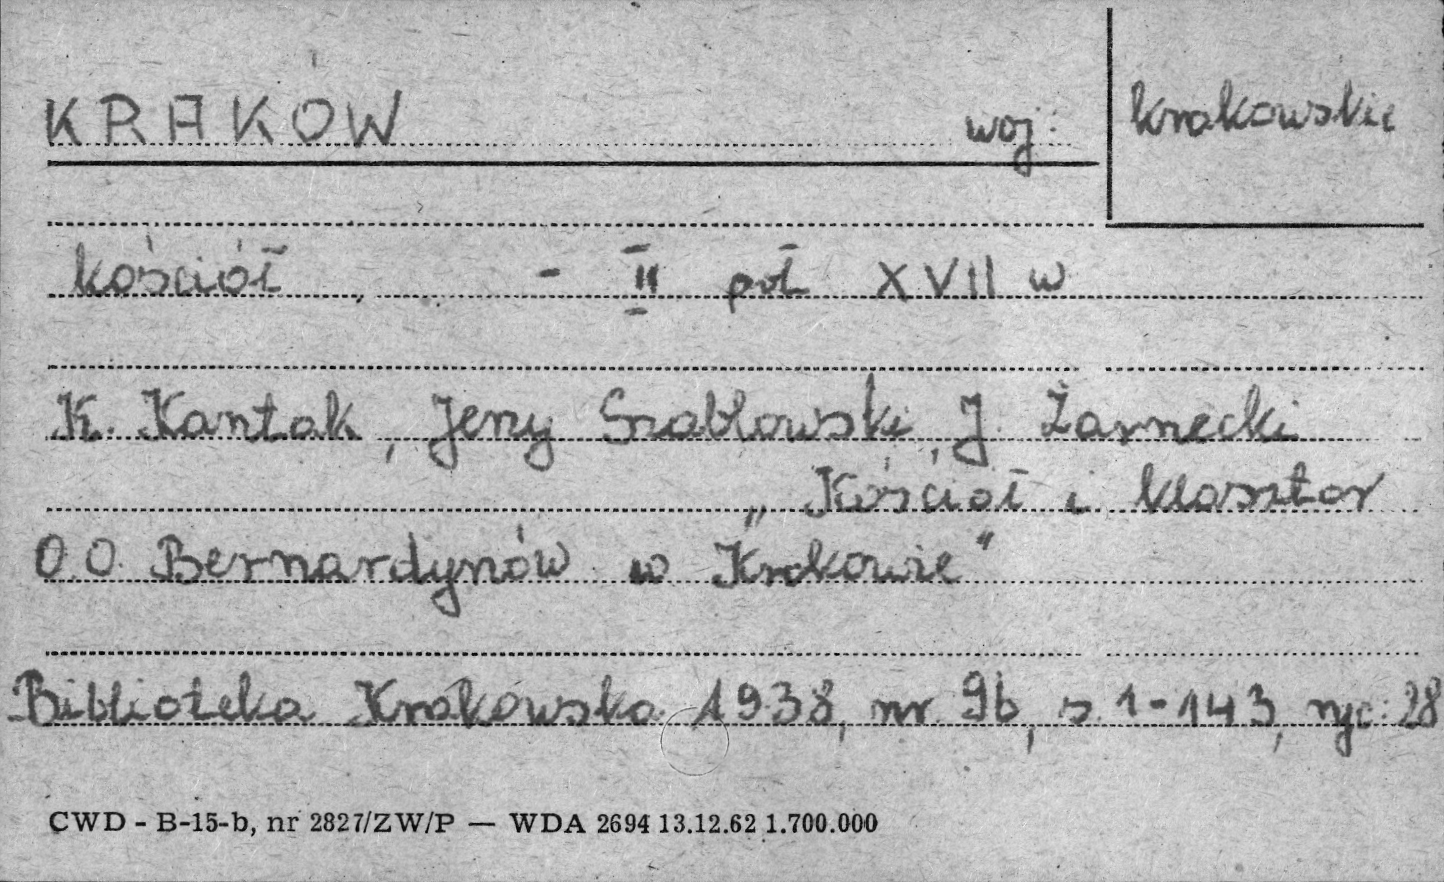 KRAKÓW woj: krakowskie
kościół - II poł XVII w
K. Kantak, Jerzy Szabłowski, J. Żarnecki
„Kościół i klasztor
O.O. Bernardynów w Krakowie"
Biblioteka Krakowska 1938, nr 96, s. 1-143, ryc. 28
CWD - B-15-b, nr 2827/ZW/P — WDA 2694 13.12.62 1.700.000